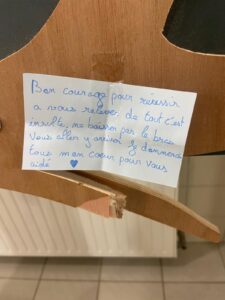 Bon courage pour réussir
a vous relever de tout c'est
insulte, ne baisser pas le bras
Vous allez y arriver je donnerai
tous mon coeur pour vous
aidé ♥